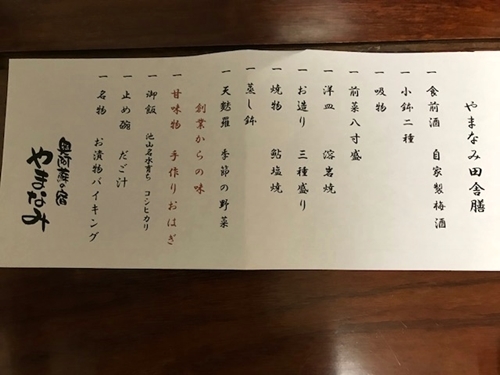 やまなみ田舎膳
一 食前酒 自家製梅酒
一 小鉢二種
一 吸物
一 前菜八寸盛
一 洋皿 溶岩焼
一 お造り 三種盛り
一 焼物 鮎塩焼
一 蒸し鉢
一 天麩羅 季節の野菜
創業からの味
一 甘味物 手作りおはぎ
一 御飯 池山名水育ち コシヒカリ
一 止め碗 だご汁
一 名物 お漬物バイキング
奥阿蘇の宿
やまなみ